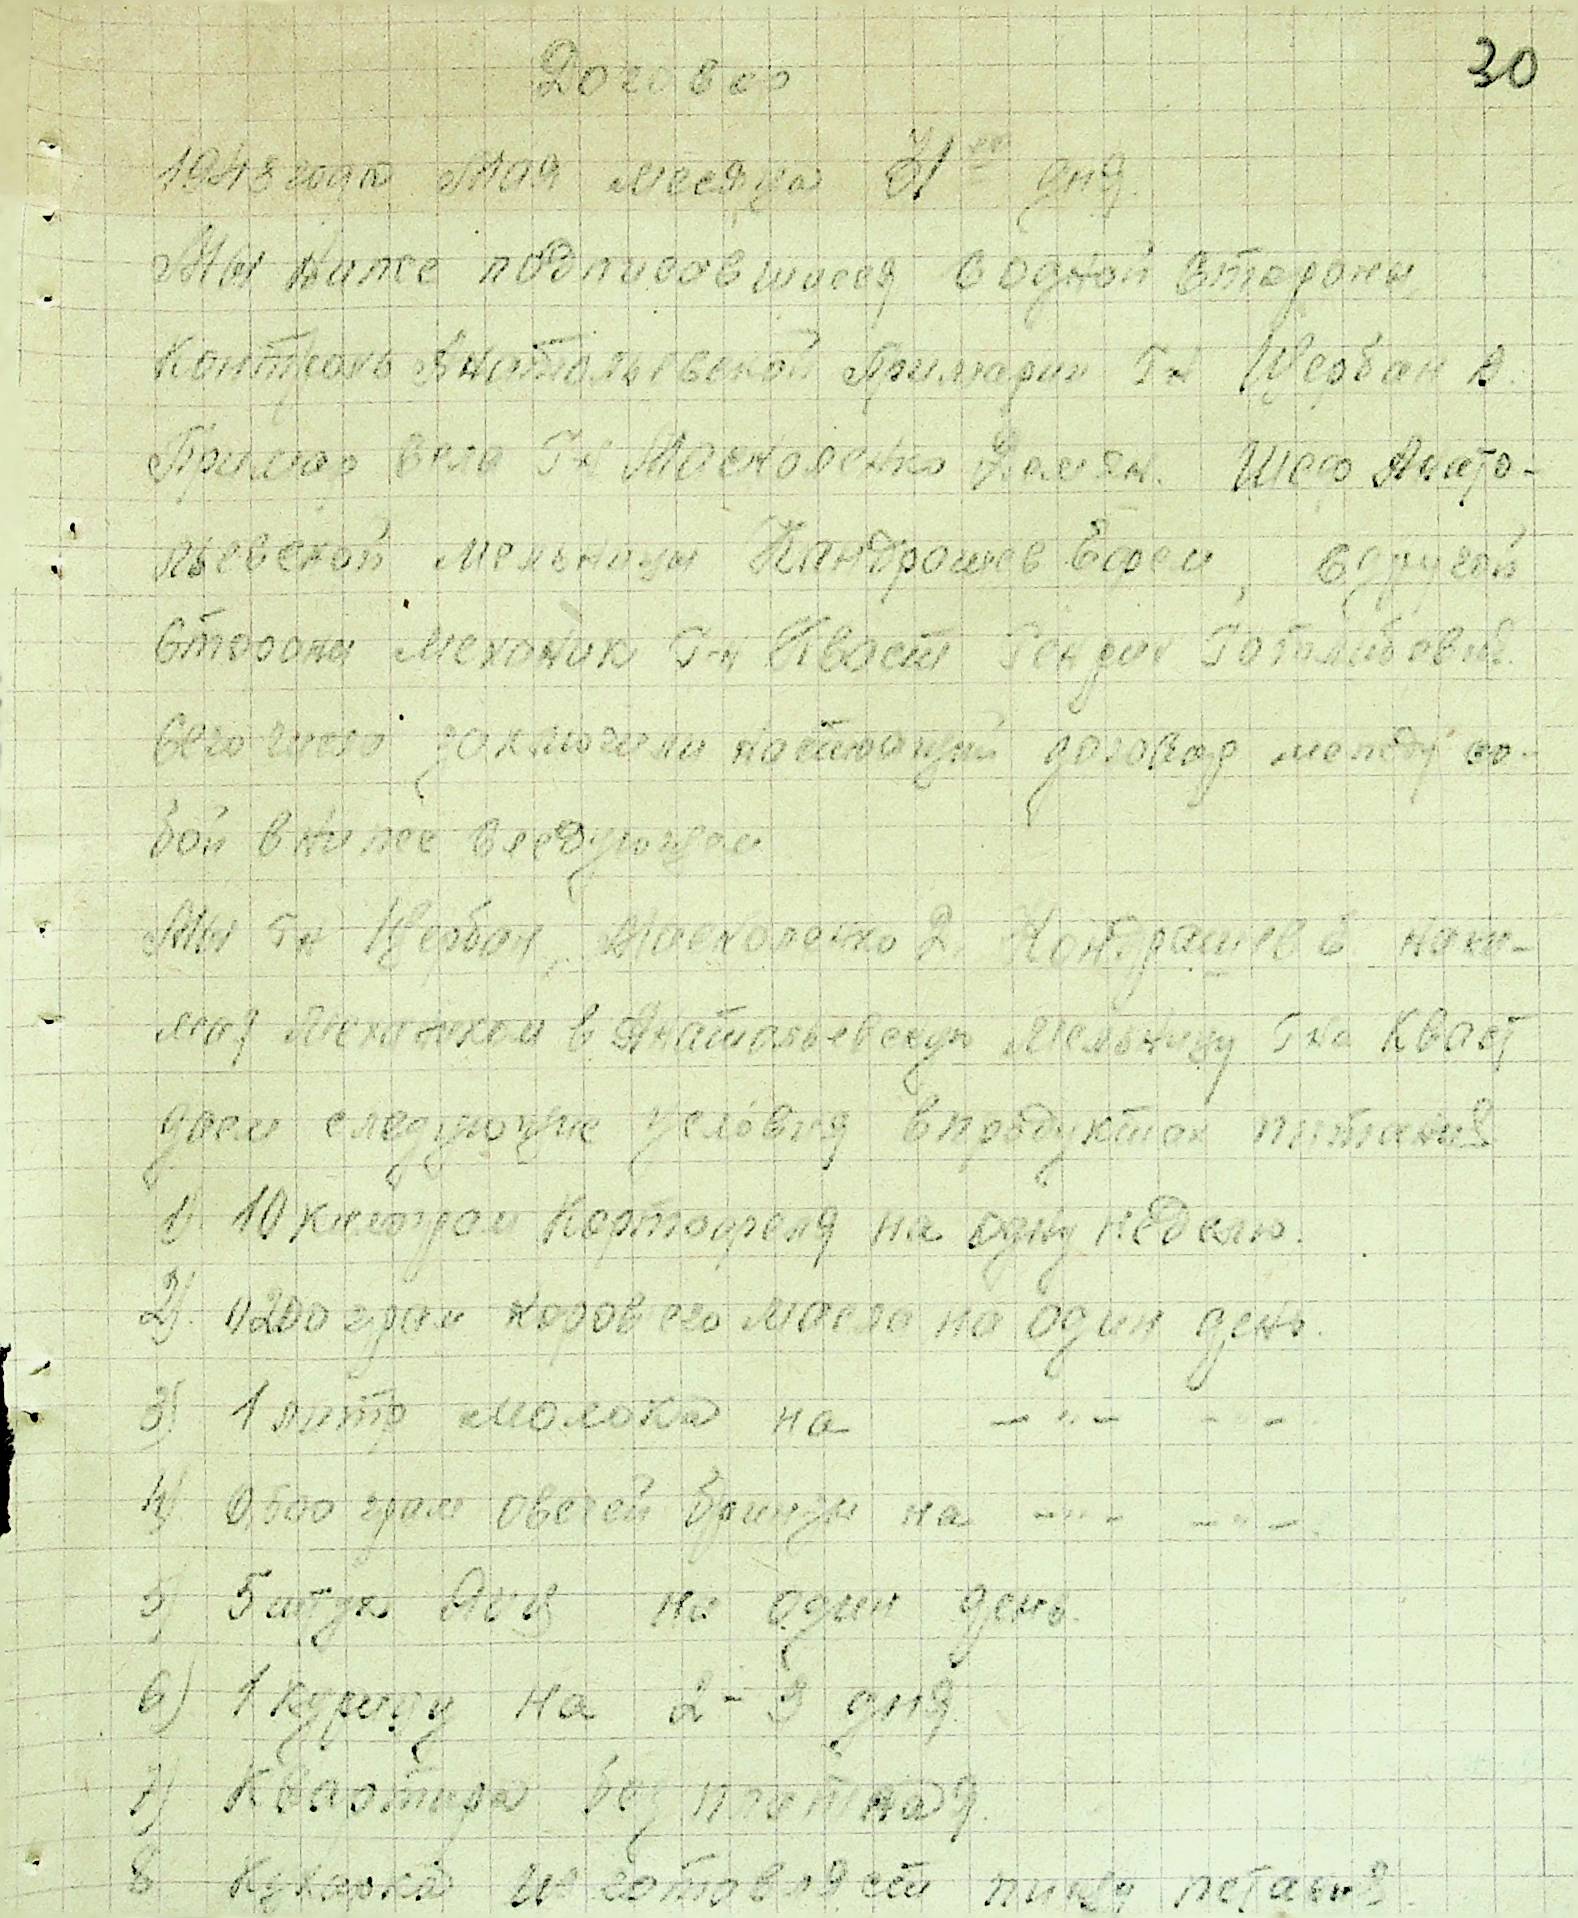 Договор
30
1943 года Мая месяца 31го дня
Мы ниже подписавшиеся водной стороны
Контроль Анатольевской Примарии Г-н Щербан А.
Примар села Г-н Масколенко Демян. Шеф Анато-
льевской мельницы Кандрашев Ефем, вдругой
стороны механик Г-н Кваст Гендрих Готлибович.
Сего числа заключили настоящий договор между со-
бой в ниже следующем
Мы Г-н Щербан, Масколенко Д. Кондрашев нани-
мая механиком в Анатольевскую Мельницу Г-на Кваст
даем следующие условия впродуктах питания
1). 10 килограм Картофеля на одну неделю.
2). 0,200 грам коровего масла на один день.
3) 1 литр молока на —"— —"—
4) 0,500 грам овечей брынзы на —"— —"—.
5) 5 штук Яиц на один день.
6) 1 курицу на 2-3 дня.
7) Квартира безплатная.
8. Кухарка изготовляет пищу питания.